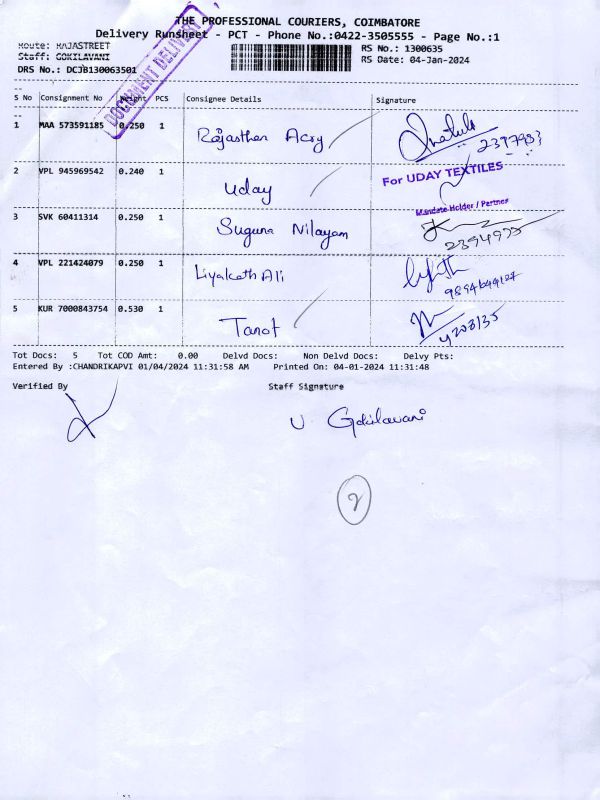 THE PROFESSIONAL COURIERS, COIMBATORE
Delivery Runsheet - PCT - Phone No.:0422-3505555 - Page No.:1
Route: RAJASTREET RS No.: 1300635
Staff: GOKILAVANI RS Date: 04-Jan-2024
DRS No.: DCJB130063501
DOCUMENT DELIVERY
S No Consignment No Weight PCS Consignee Details Signature
1 MAA 573591185 0.250 1 Rajasthan Acsy 2397933
2 VPL 945969542 0.240 1 Uday For UDAY TEXTILES
Mandate Holder / Partner
3 SVK 60411314 0.250 1 Suguna Nilayam 2394975
4 VPL 221424079 0.250 1 Liyakath Ali
5 KUR 7000843754 0.530 1 Tanot 4203135
Tot Docs: 5 Tot COD Amt: 0.00 Delvd Docs: Non Delvd Docs: Delvy Pts:
Entered By :CHANDRIKAPVI 01/04/2024 11:31:58 AM Printed On: 04-01-2024 11:31:48
Verified By Staff Signature
U Gokilavani
2